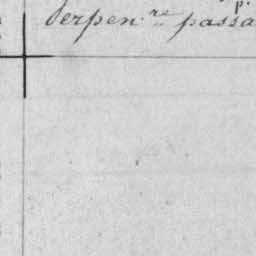 Serpen.re passa